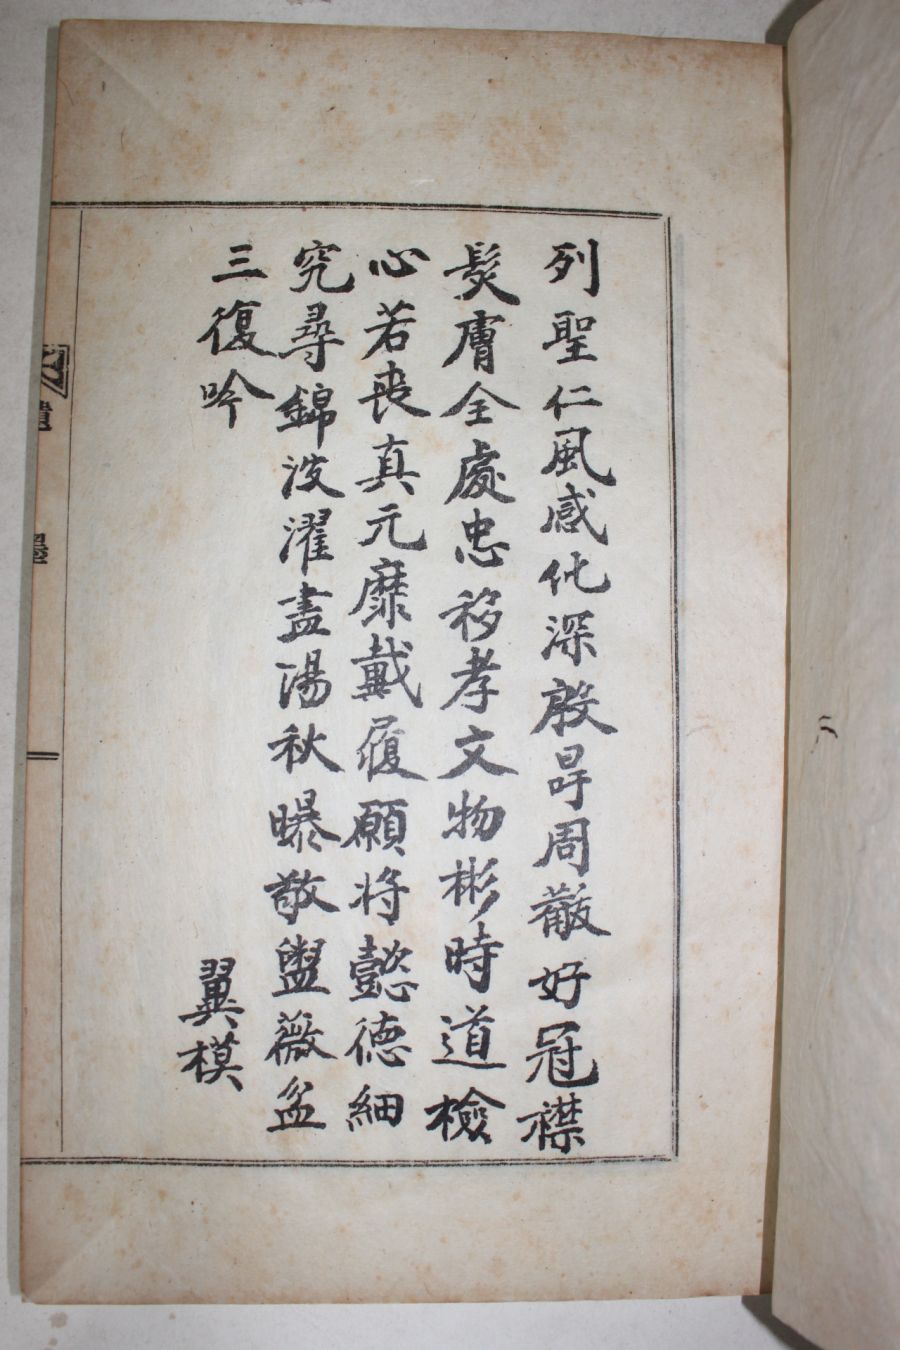 列聖仁風感化深殷冔周黻好冠襟
髮膚全處忠移孝文物彬時道檢
心若喪真元靡戴履願將懿德細
究尋錦波濯盡陽秋曝敬盥薇盆
三復吟
翼模
遺墨
二